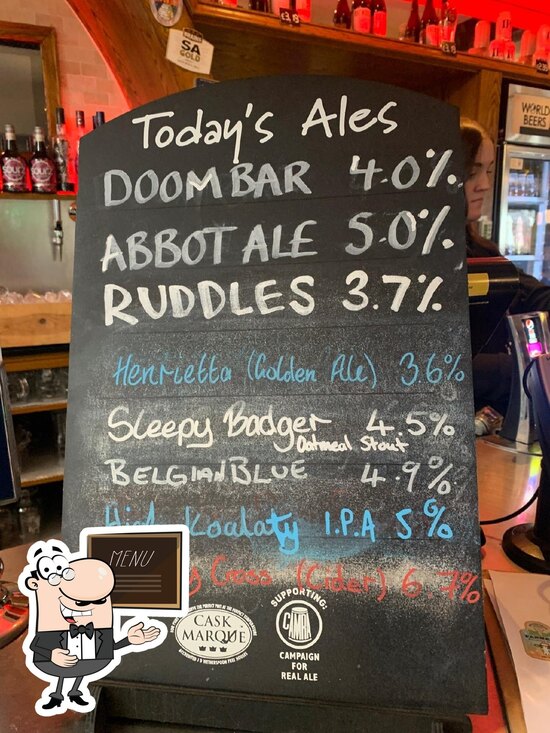 SA
GOLD
WORLD
BEERS
Today's Ales
DOOM BAR 4.0%
ABBOT ALE 5.0%
RUDDLES 3.7%
Henrietta (Golden Ale) 3.6%
Sleepy Badger 4.5%
Oatmeal Stout
BELGIAN BLUE 4.9%
High Koalaty I.P.A 5%
Cross (Cider) 6.7%
MENU
CASK
MARQUE
SUPPORTING:
CAMRA
CAMPAIGN
FOR
REAL ALE